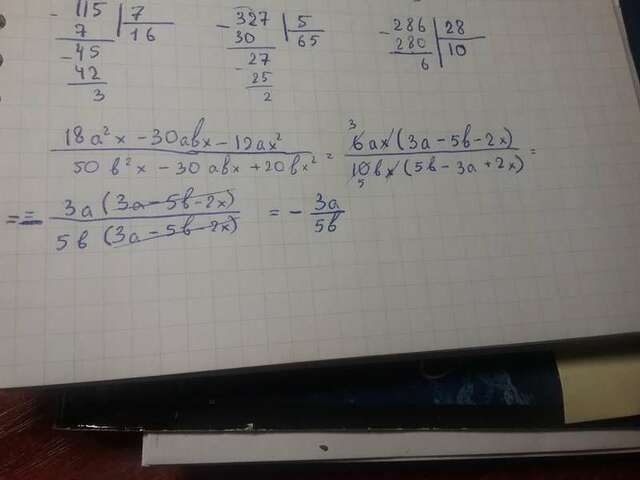 - 115 | 7
7 | 16
- 45
42
3
- 327 | 5
30 | 65
27
- 25
2
- 286 | 28
280 | 10
6
18a²x - 30abx - 12ax² / 50b²x - 30abx + 20bx² = 3 6ax(3a - 5b - 2x) / 10bx(5b - 3a + 2x) 5 =
= = 3a(3a - 5b - 2x) / 5b(3a - 5b - 2x) = - 3a / 5b